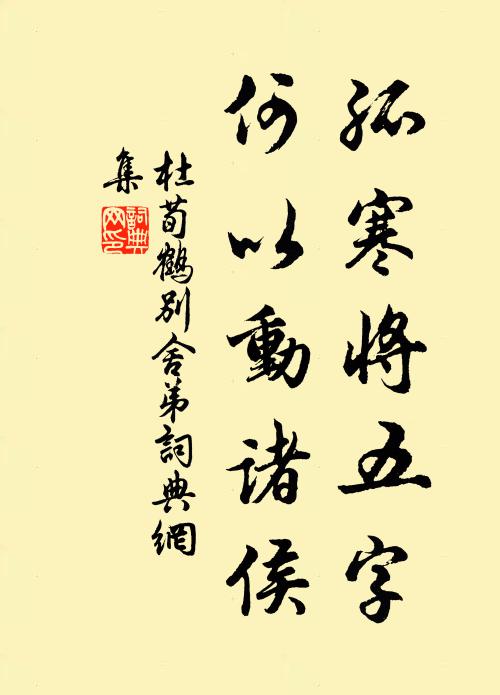 孤寒将五字
何以動诸侯
杜荀鶴别舍弟詞典網
集
詞典
网印